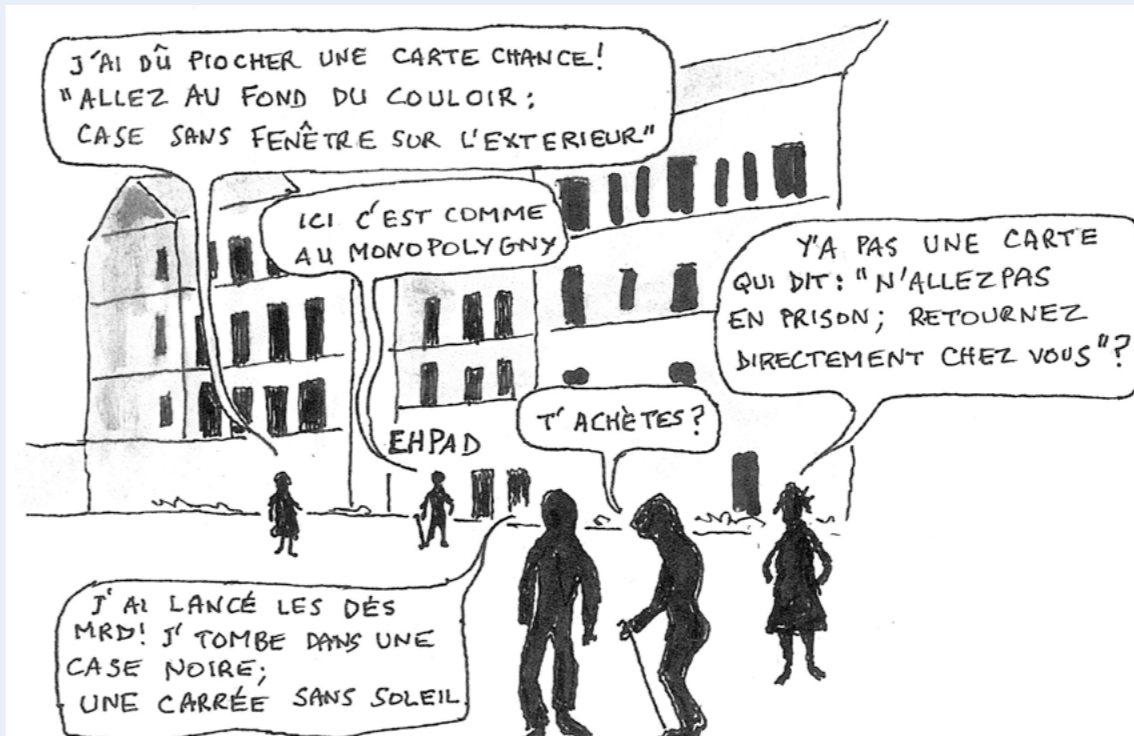 J'AI DÛ PIOCHER UNE CARTE CHANCE!
"ALLEZ AU FOND DU COULOIR:
CASE SANS FENÊTRE SUR L'EXTERIEUR"
ICI C'EST COMME
AU MONOPOLYGNY
Y'A PAS UNE CARTE
QUI DIT: "N'ALLEZ PAS
EN PRISON; RETOURNEZ
DIRECTEMENT CHEZ VOUS"?
T'ACHÈTES?
EHPAD
J'AI LANCÉ LES DÉS
MRD! J'TOMBE DANS UNE
CASE NOIRE;
UNE CARRÉE SANS SOLEIL